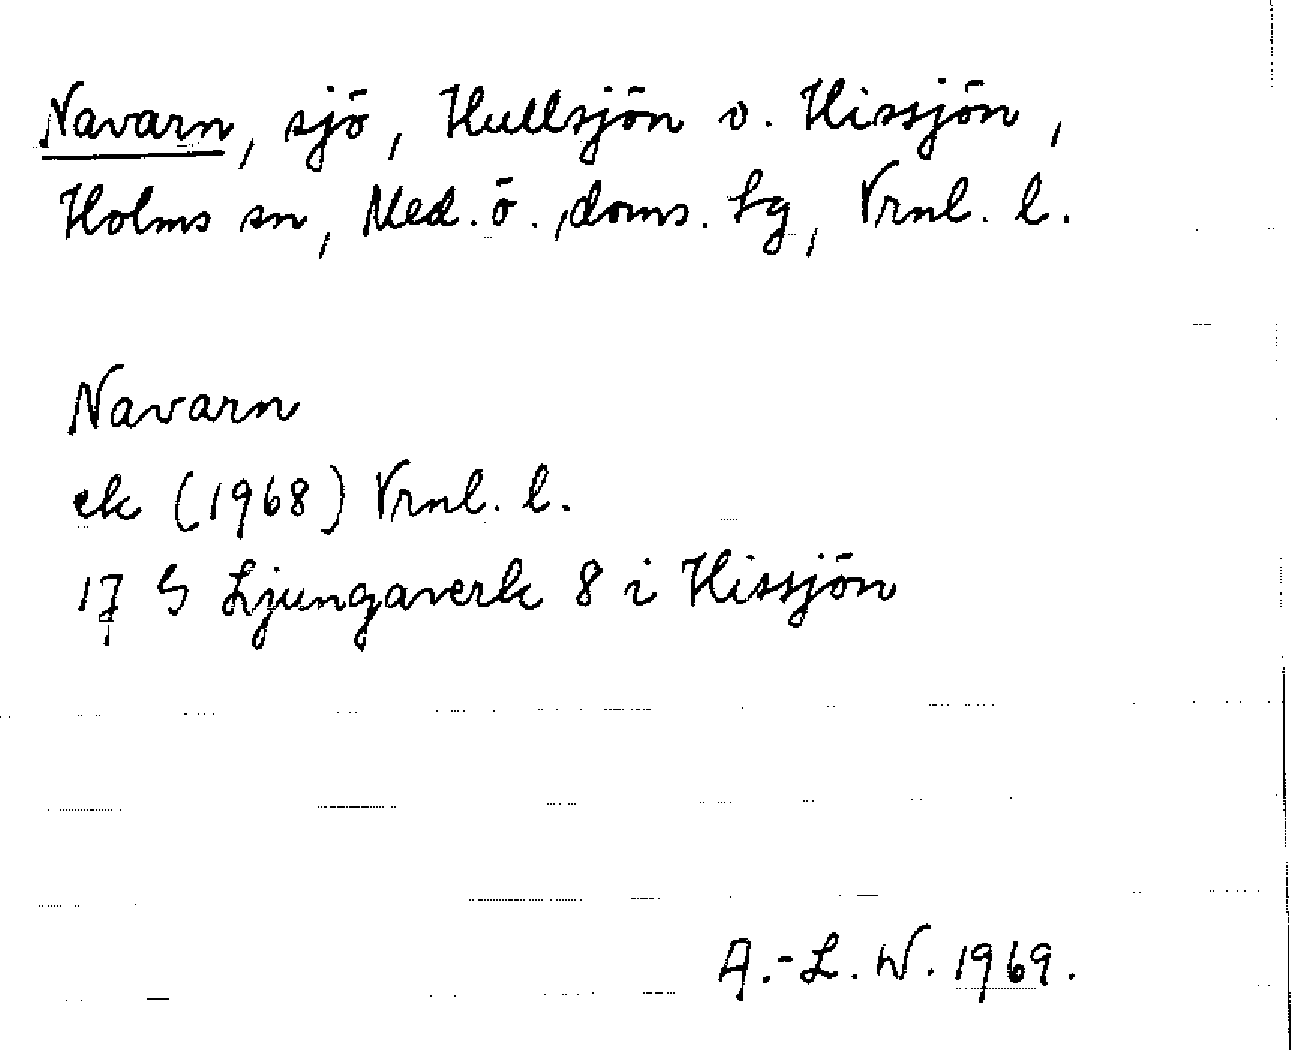 Navarn, sjö, Hullsjön o. Hissjön,
Holms sn, Med. ö. doms. lg, Vrnl. l.
Navarn
ek (1968) Vrnl. l.
17 G Ljungaverk 8 i Hissjön
A.-L. W. 1969.